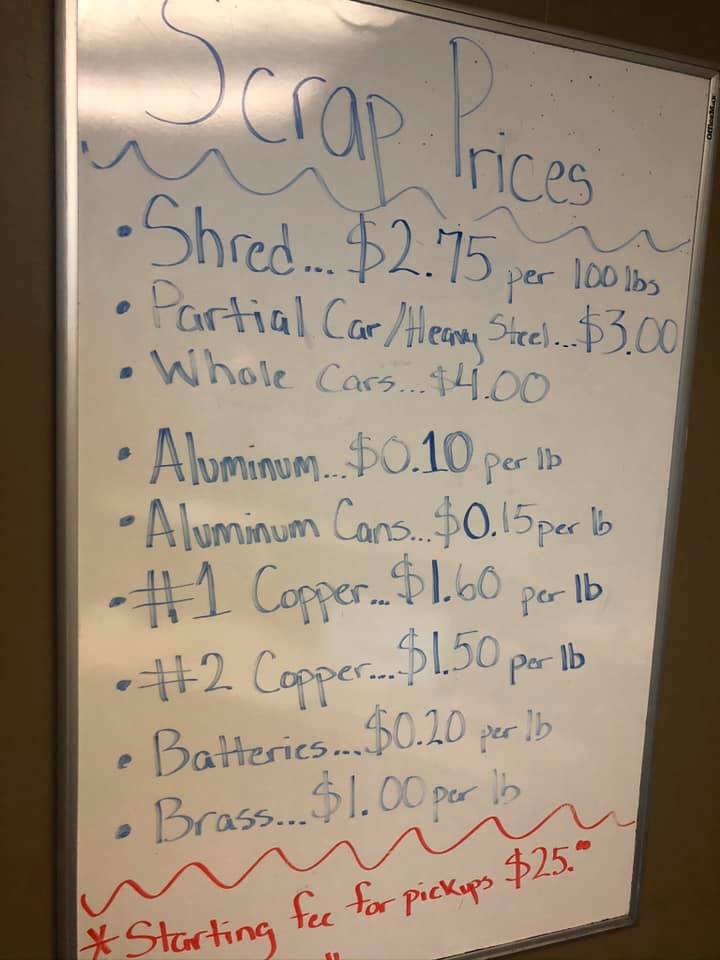 Scrap Prices
• Shred... $2.75 per 100 lbs
• Partial Car/Heavy Steel...$3.00
• Whole Cars...$4.00
• Aluminum...$0.10 per lb
• Aluminum Cans...$0.15 per lb
• #1 Copper...$1.60 per lb
• #2 Copper...$1.50 per lb
• Batteries...$0.20 per lb
• Brass...$1.00 per lb
* Starting fee for pickups $25.00
OfficeMax